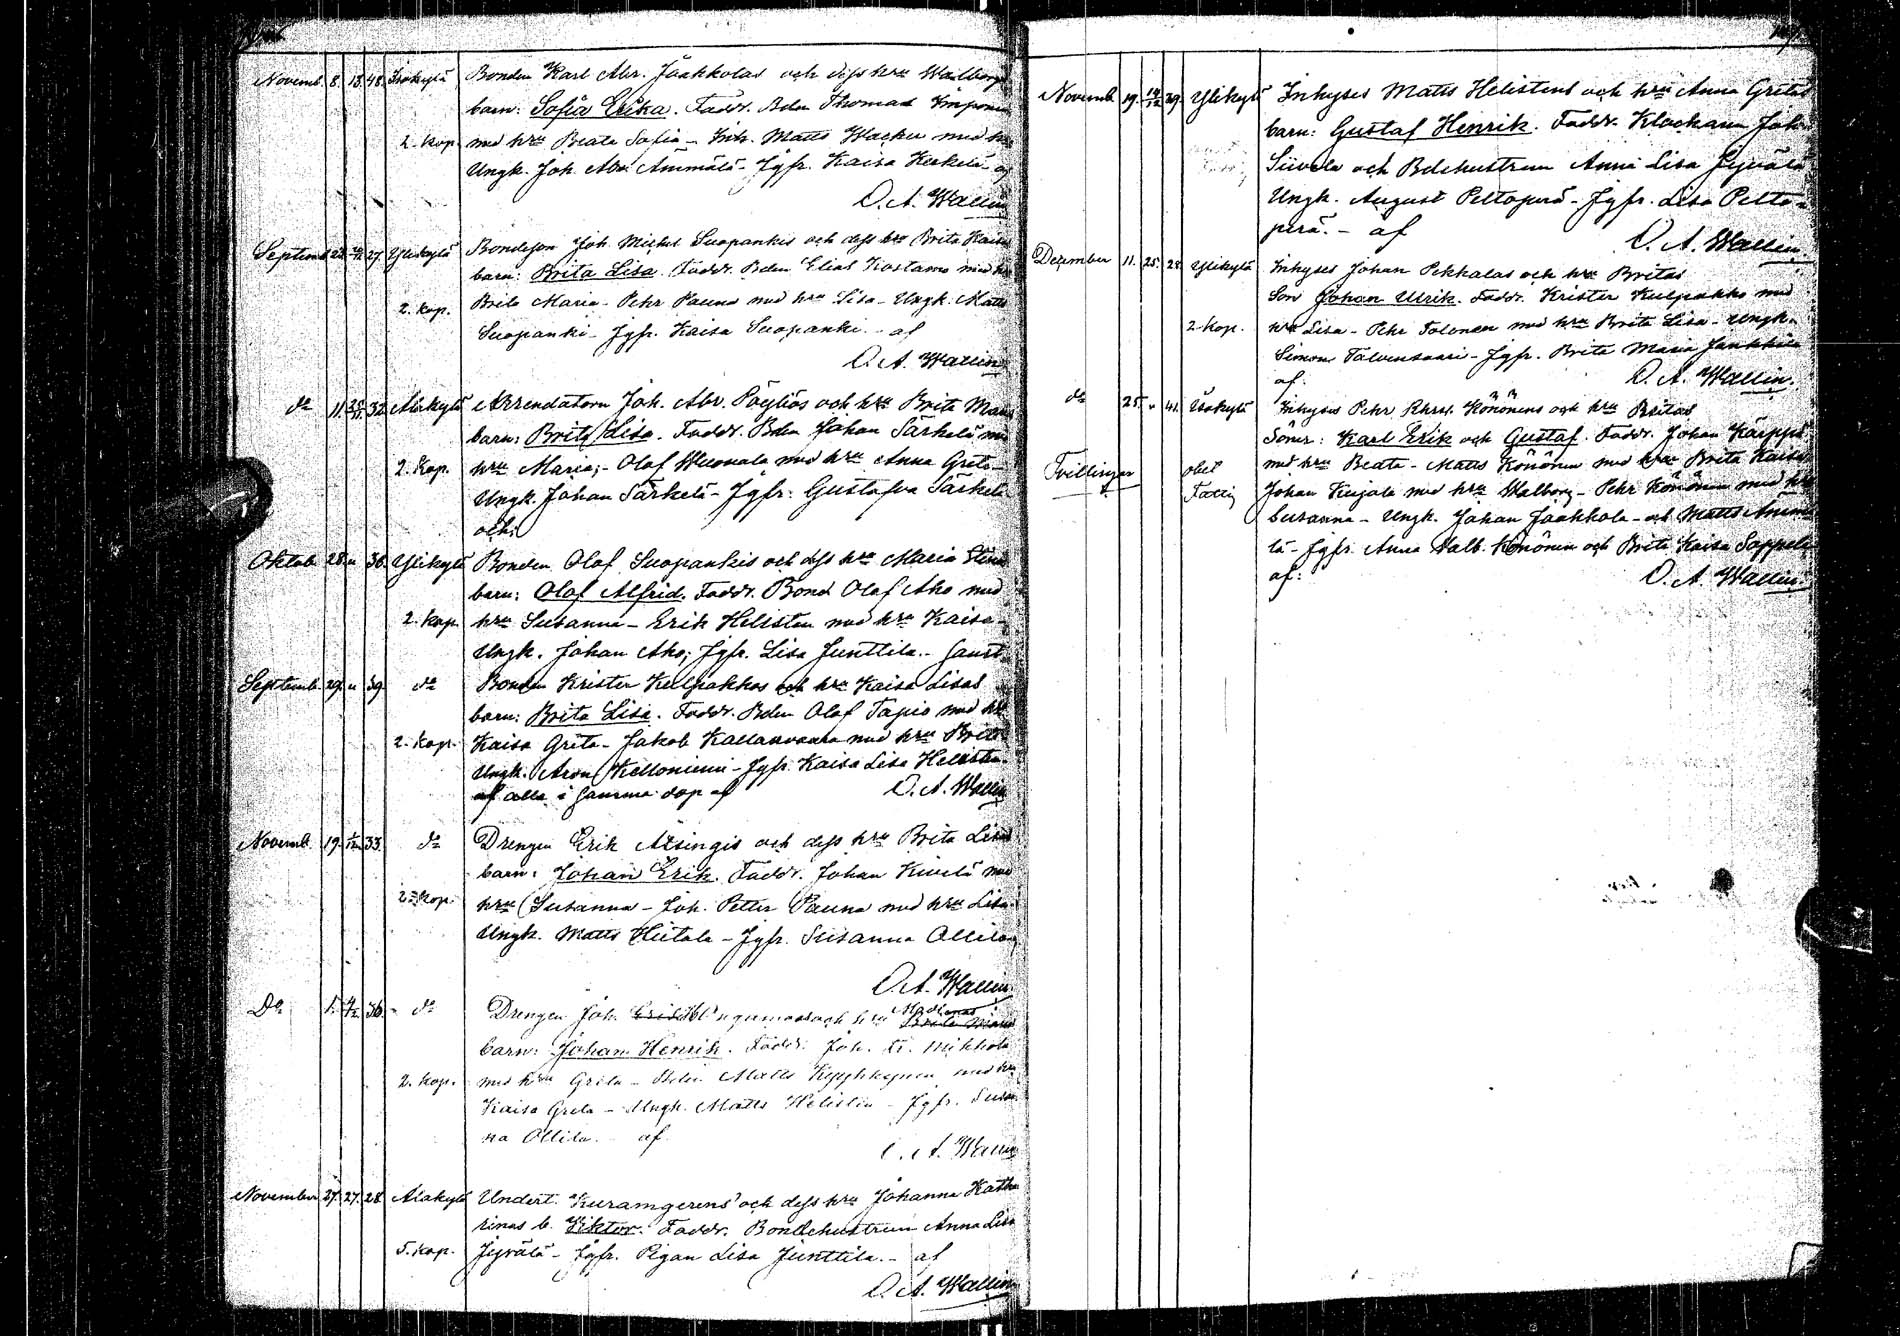 Novemb. 8. 13. 48. Isokylä Bonden Karl Abr. Jaakkolas och dess hru Walborgs
barn: Sofia Erika. Faddr. Bden Thomas Kinpomen
2. kop. med hru Beata Sofia - Inh. Matts Wacker med hru
Ungk. Joh. Abr. Ämmälä - Jgfr. Kaisa Kerkelä - af
O. A. Wallin
Septemb 23. 27. Ylikylä Bondeson Joh. Michel Suopankis och dess hru Brita Kaisas
barn: Brita Lisa. Faddr. Bden Elias Kostamo med hru
2. kop. Brita Maria - Pehr Pauna med hru Lisa - Ungk. Matts
Suopanki - Jgfr. Kaisa Suopanki - af
O. A. Wallin
do 11. 25/11 32. Alakylä Arrendatorn Joh. Abr. Pöyliös och hru Brita Marias
barn: Brita Lisa. Faddr. Bden Johan Särkelä med
2. kop. hru Maria; - Olof Wuonala med hru Anna Greta -
Ungk. Johan Särkelä - Jgfr. Gustafva Särkelä
och:
Oktob. 28. " 36. Ylikylä Bonden Olof Suopankis och dess hru Maria Stinas
barn: Olof Alfrid. Faddr. Bond Olof Aho med
2. kop. hru Susanna - Erik Helisten med hru Kaisa -
Ungk. Johan Aho; Jgfr. Lisa Junttila. - samt
Septemb. 29. " 39. do Bonden Krister Kulpakkos och hru Kaisa Lisas
barn: Brita Lisa. Faddr. Bden Olof Tapio med hru
2. kop. Kaisa Greta - Jakob Kallanvaara med hru Brita
Ungk. Aron Kelloniemi - Jgfr. Kaisa Lisa Helisten
af alla i samma dop af O. A. Wallin
Novemb. 19. 1/12 33. do Drengen Erik Aisingis och dess hru Brita Lisas
barn: Johan Erik. Faddr. Johan Kivelä med
2. kop. hru Susanna - Joh. Petter Pauna med hru Lisa.
Ungk. Matts Hietala - Jgfr. Susanna Ollila af
O. A. Wallin
Do 1. 4/12 36. do Drengen Joh. och hru Madlenas
barn: Johan Henrik. Faddr. Joh. Er. Mikkola
2. kop. med hru Greta - Bden Matts Kyyhkynen med hru
Kaisa Greta - Ungk. Matts Helistin - Jgfr. Susan
na Ollila. - af
O. A. Wallin
November 27. 27. 28. Alakylä Undert. Kuramgerens och dess hru Johanna Katha
rinas b. Viktor. Faddr. Bondehustrun Anna Lisa
5. kop. Jyvälä - Jgfr. Pigan Lisa Junttila. - af
O. A. Wallin
Novemb. 19. 14/12 29. Ylikylä Inhyses Matts Helistens och hru Anna Gretas
barn: Gustaf Henrik. Faddr. Klockaren Joh.
Siivola och Bdehustrun Anna Lisa Jyvälä
Ungk. August Peltoperä - Jgfr. Lisa Pelto-
perä. - af
O. A. Wallin.
December 11. 25. 28. Ylikylä Inhyses Johan Pekkalas och hru Britas
Son Johan Ulrik. Faddr. Krister Kulpakko med
2. kop. hru Lisa - Pehr Tolonen med hru Brita Lisa - Ungk.
Simon Talvensaari - Jgfr. Brita Maria Jankkila
af: O. A. Wallin.
do 25. " 41. Isokylä Inhyses Pehr Könönens och hru Britas
Söner: Karl Erik och Gustaf. Faddr. Johan Karppi
Tvillingar obet med hru Beata - Matts Könönen med hru Brita Kaisa
Fattig Johan Kujala med hru Walborg - Pehr Könönen med hru
Susanna - Ungk. Johan Jaakkola - och Matts Ämmä
lä - Jgfr. Anna Valb. Könönen och Brita Kaisa Soppela
af: O. A. Wallin.